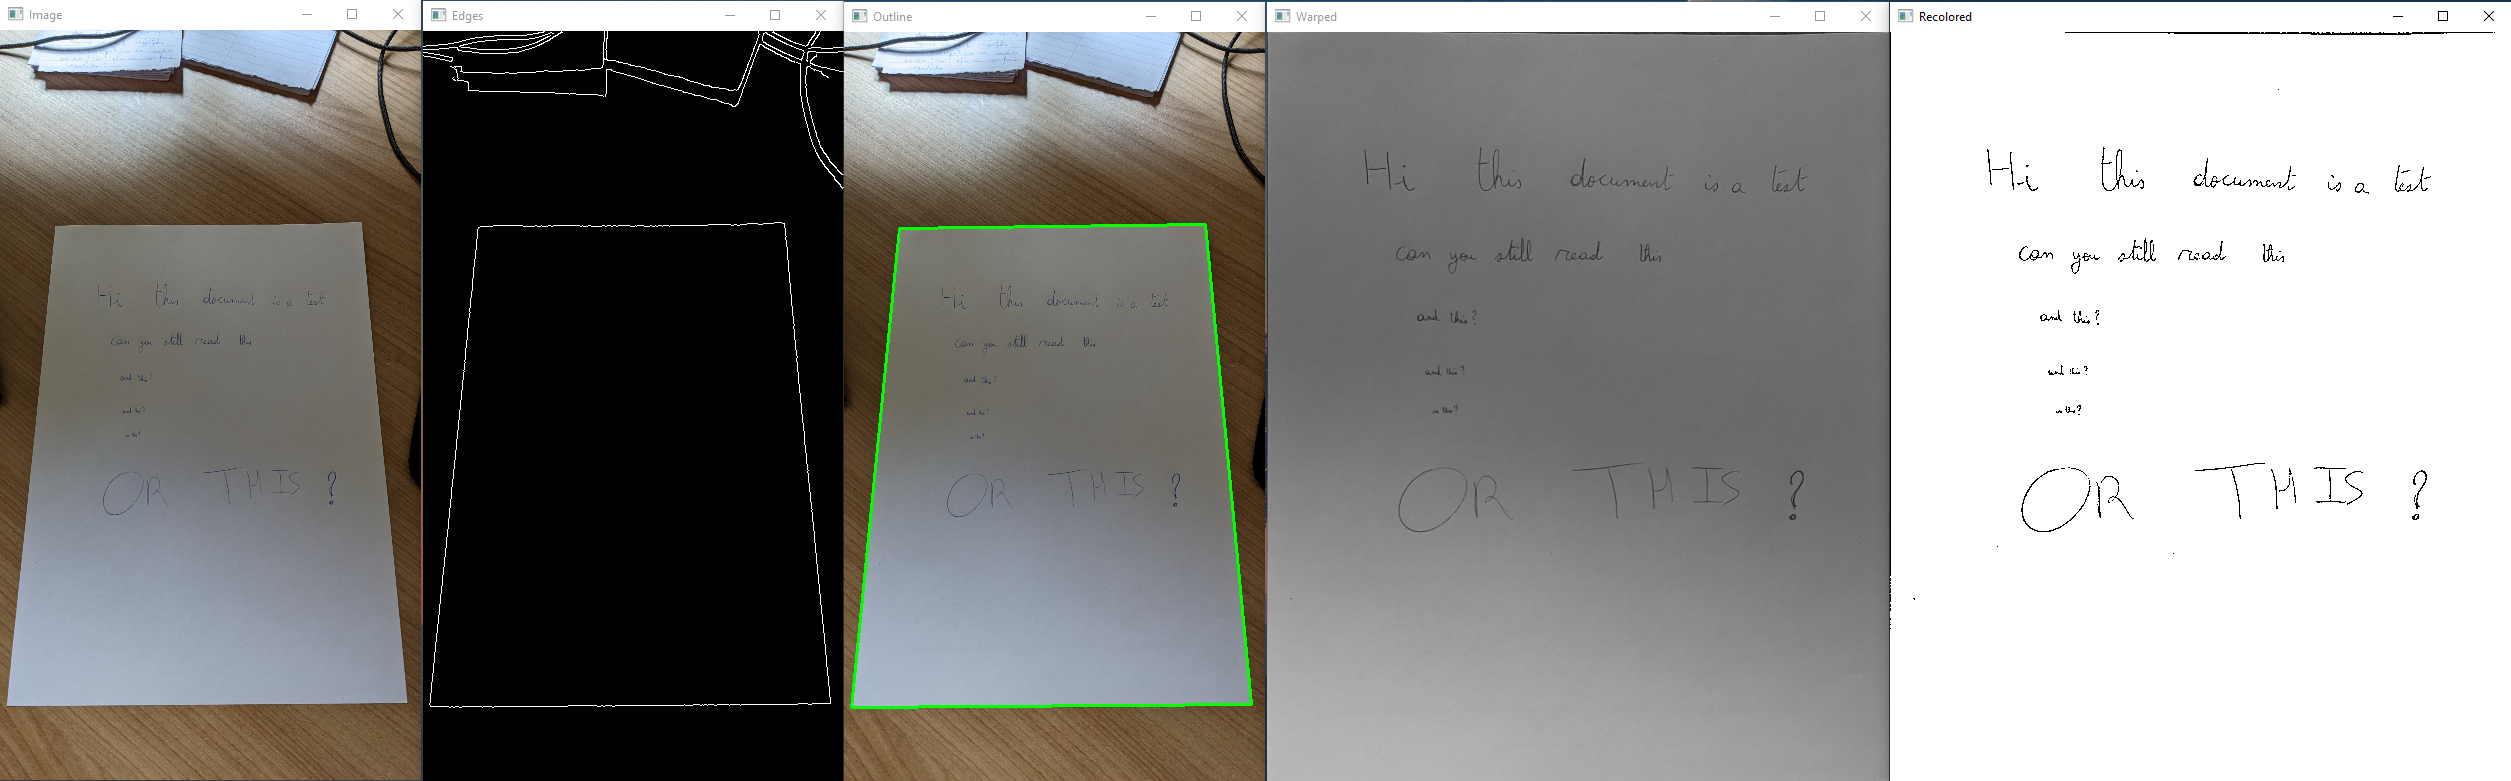 Image
Edges
Outline
Warped
Recolored
Hi this document is a test
can you still read this
and this?
and this?
is this?
OR THIS ?
Hi this document is a test
can you still read this
and this?
and this?
is this?
OR THIS ?
Hi this document is a test
can you still read this
and this?
and this?
is this?
OR THIS ?
Hi this document is a test
can you still read this
and this?
and this?
is this?
OR THIS ?